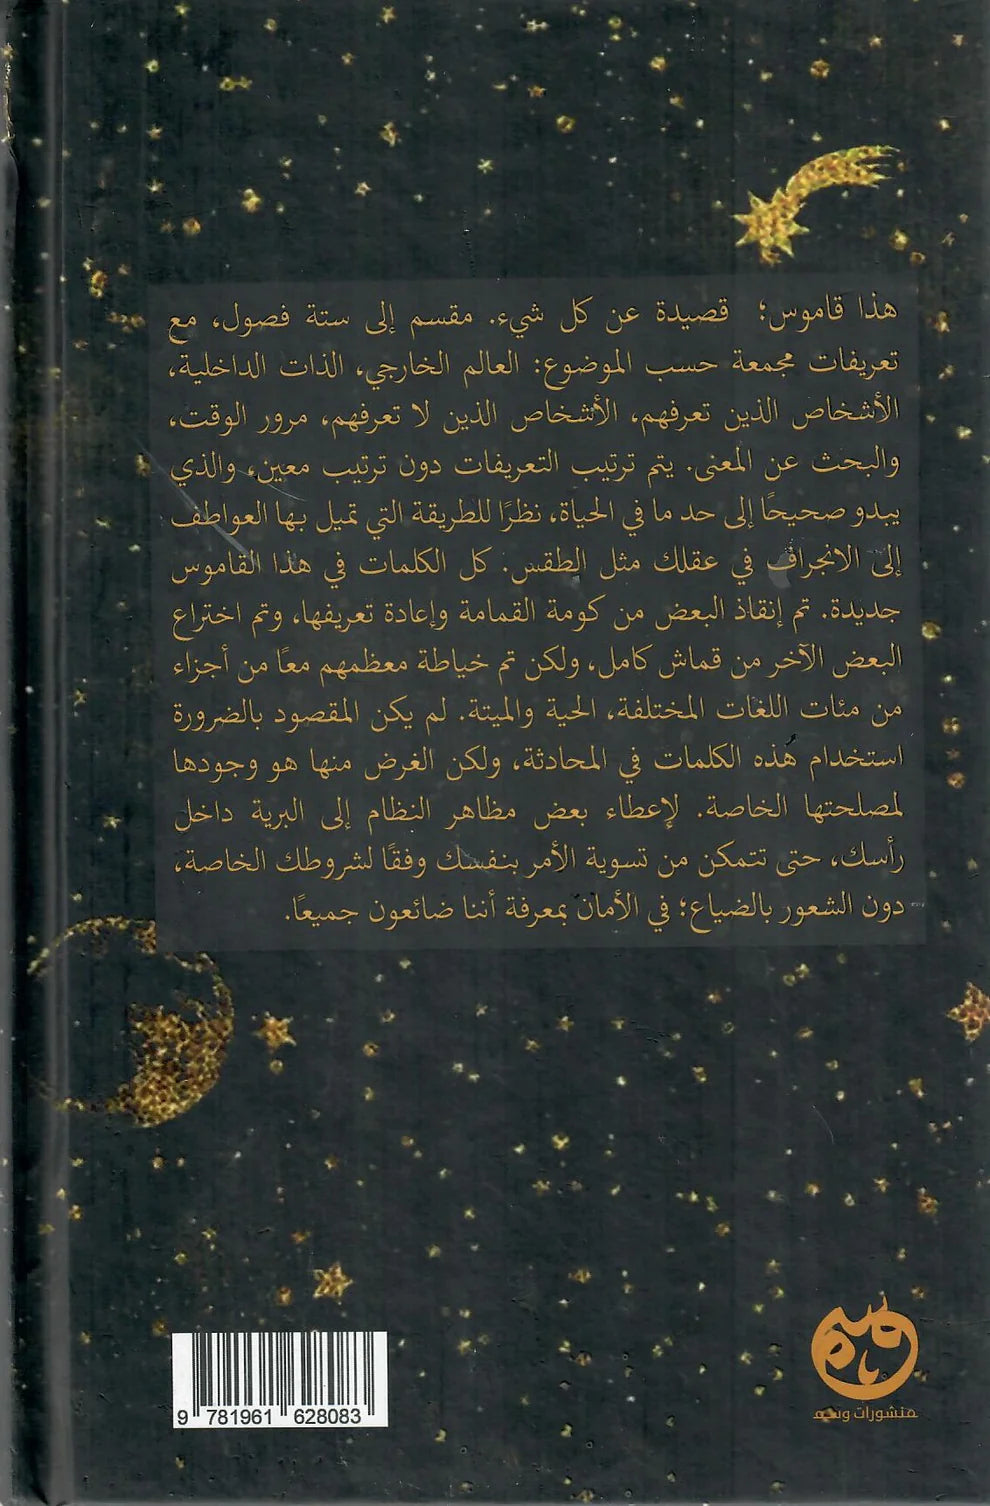 هذا قاموس؛ قصيدة عن كل شيء. مقسم إلى ستة فصول، مع
تعريفات مجمعة حسب الموضوع: العالم الخارجي، الذات الداخلية،
الأشخاص الذين تعرفهم، الأشخاص الذين لا تعرفهم، مرور الوقت،
والبحث عن المعنى. يتم ترتيب التعريفات دون ترتيب معين، والذي
يبدو صحيحًا إلى حد ما في الحياة، نظرًا للطريقة التي تميل بها العواطف
إلى الانجراف في عقلك مثل الطقس. كل الكلمات في هذا القاموس
جديدة. تم إنقاذ البعض من كومة القمامة وإعادة تعريفها، وتم اختراع
البعض الآخر من قماش كامل، ولكن تم خياطة معظمهم معًا من أجزاء
من مئات اللغات المختلفة، الحية والميتة. لم يكن المقصود بالضرورة
استخدام هذه الكلمات في المحادثة، ولكن الغرض منها هو وجودها
لمصلحتها الخاصة. لإعطاء بعض مظاهر النظام إلى البرية داخل
رأسك، حتى تتمكن من تسوية الأمر بنفسك وفقًا لشروطك الخاصة،
دون الشعور بالضياع؛ في الأمان بمعرفة أننا ضائعون جميعًا.
وسم
منشورات وسم
9 781961 628083